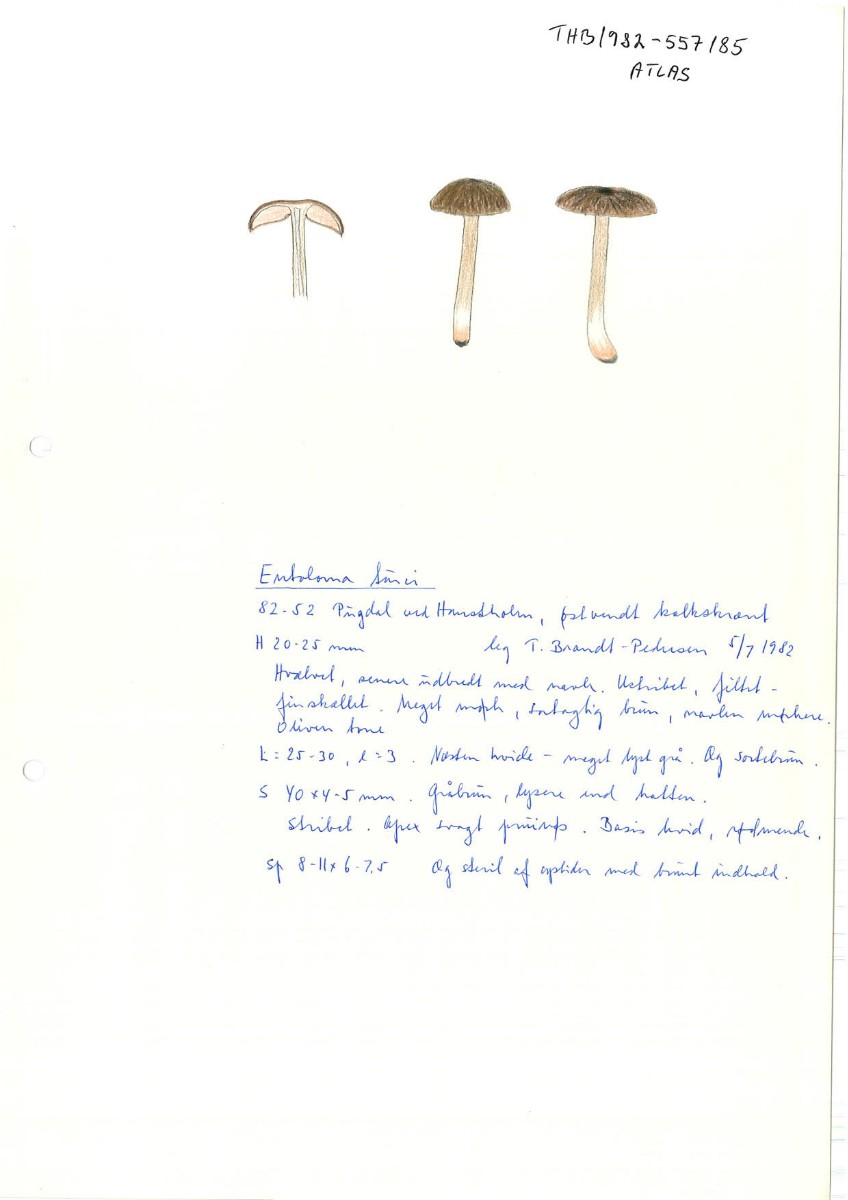 THB/982-557/85
ATLAS
Entoloma
82-52 ved Hanstholm, østvendt kalkskrænt
H 20-25 mm leg T. Brandt-Pedersen 5/7 1982
Hvælvet, senere udbredt med navle. Ustribet, filtet-
finskællet. Meget mørk, sortagtig brun, navlen mørkere.
Oliven tone
L = 25-30, l = 3. Næsten hvide - meget lyst grå. Æg sortebrun.
S 40 x 4-5 mm. Gråbrun, lysere end hatten.
Stribet. Apex svagt pruinøs. Basis hvid, rødmende.
Sp 8-11 x 6-7,5 Æg steril af cystider med brunt indhold.